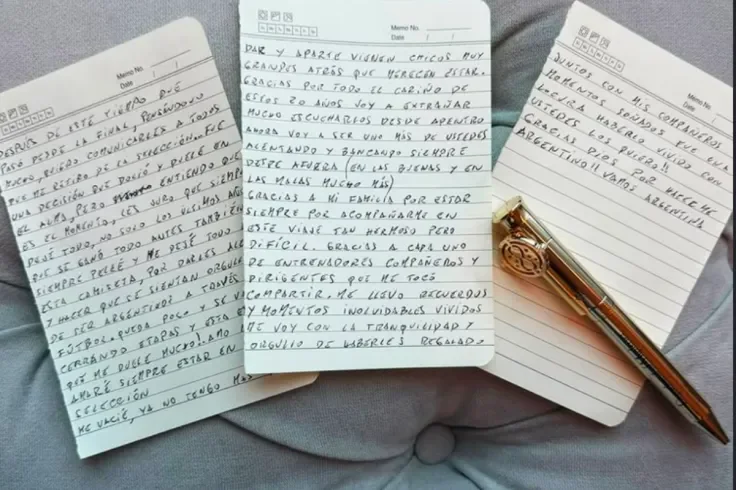 Memo No.
Date / /
DESPUÉS DE ESTE TIEMPO QUE
PASÓ DESDE LA FINAL, PENSÁNDOLO
MUCHO, QUIERO COMUNICARLES A TODOS
QUE ME RETIRO DE LA SELECCIÓN. FUE
UNA DECISIÓN QUE DOLIÓ Y DUELE EN
EL ALMA, PERO ENTIENDO QUE
ES EL MOMENTO. LES JURO QUE SIEMPRE
DEJÉ TODO, NO SOLO LOS ÚLTIMOS AÑOS
QUE SE GANÓ TODO ANTES TAMBIÉN
SIEMPRE PELEÉ Y ME DEJÉ TODO
ESTA CAMISETA, POR DARLES ALE
Y HACER QUE SE SIENTAN ORGULL
DE SER ARGENTINOS A TRAVÉS
FÚTBOL. QUEDA POCO Y SE VA
CERRANDO ETAPAS Y ESTA E
QUE ME DUELE MUCHO! AMO
AMARÉ SIEMPRE ESTAR EN
SELECCIÓN
ME VACIÉ, YA NO TENGO MÁS
Memo No.
Date / /
DAR Y APARTE VIENEN CHICOS MUY
GRANDES ATRÁS QUE MERECEN ESTAR.
GRACIAS POR TODO EL CARIÑO DE
ESTOS 20 AÑOS VOY A EXTRAÑAR
MUCHO ESCUCHARLOS DESDE ADENTRO
AHORA VOY A SER UNO MÁS DE USTEDES
ALENTANDO Y BANCANDO SIEMPRE
DESDE AFUERA (EN LAS BUENAS Y EN
LAS MALAS MUCHO MÁS)
GRACIAS A MI FAMILIA POR ESTAR
SIEMPRE POR ACOMPAÑARME EN
ESTE VIAJE TAN HERMOSO PERO
DIFÍCIL. GRACIAS A CADA UNO
DE ENTRENADORES COMPAÑEROS Y
DIRIGENTES QUE ME TOCÓ
COMPARTIR. ME LLEVO RECUERDOS
Y MOMENTOS INOLVIDABLES VIVIDOS
ME VOY CON LA TRANQUILIDAD Y
ORGULLO DE HABERLES REGALADO
Memo No.
Date / /
JUNTOS CON MIS COMPAÑEROS
MOMENTOS SOÑADOS FUE UNA
LOCURA HABERLO VIVIDO CON
USTEDES LOS QUIERO!!
GRACIAS DIOS POR HACERME
ARGENTINO!! VAMOS ARGENTINA